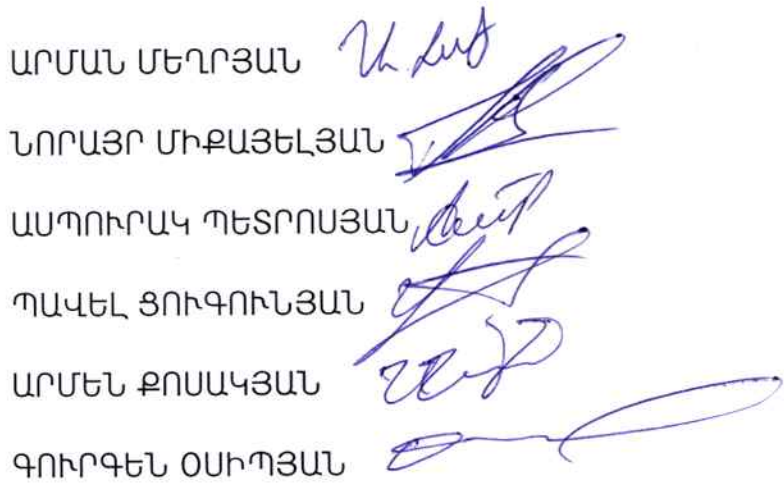 ԱՐՄԱՆ ՄԵՂՐՅԱՆ
ՆՈՐԱՅՐ ՄԻՔԱՅԵԼՅԱՆ
ԱՍՊՈՒՐԱԿ ՊԵՏՐՈՍՅԱՆ
ՊԱՎԵԼ ՑՈՒԳՈՒՆՅԱՆ
ԱՐՄԵՆ ՔՈՍԱԿՅԱՆ
ԳՈՒՐԳԵՆ ՕՍԻՊՅԱՆ